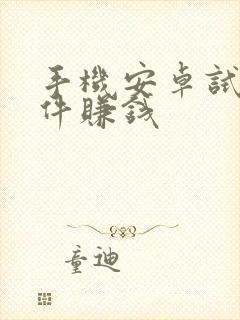 手機安卓試
件賺錢
童迪